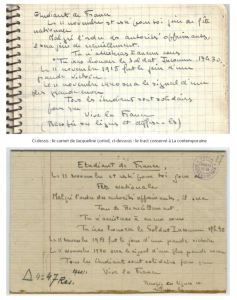 Etudiant de France
Le 11 novembre est pour toi jour de fête
nationale
Malgré l'ordre des autorités opprimantes,
il sera jour de recueillement.
Tu n'assisteras à aucun cours
Tu iras honorer le Soldat Inconnu 17h30.
Le 11 novembre 1918 fut le jour d'une
grande victoire
Le 11 novembre 1940 sera le signal d'une
plus grande encore
Tous les étudiants sont solidaires
pour que
Vive la France
Recopie ces lignes et diffuse-les
Ci-dessus : le carnet de Jacqueline ; ci-dessous : le tract conservé à La contemporaine
Etudiant de France,
Le 11 novembre est resté pour toi jour de
Fête nationale
Malgré l'ordre des autorités opprimantes, il sera
Jour de Recueillement.
Tu n'assisteras à aucun cours
Tu iras honorer le Soldat Inconnu 17h30
Le 11 novembre 1918 fut le jour d'une grande victoire
Le 11 novembre 1940 sera le signal d'une plus grande encore
Tous les étudiants sont solidaires pour que
Vive la France
Recopie ces lignes et